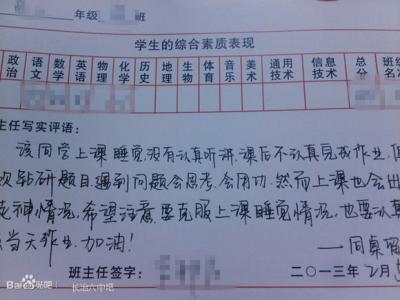 年级 班
学生的综合素质表现
政治 语文 数学 英语 物理 化学 历史 地理 生物 体育 音乐 美术 通用技术 信息技术 总分 班级名
主任写实评语:
该同学上课睡觉,没有认真听讲,课后不认真完成作业,但
欢钻研题目,遇到问题会思考,会用功,然而上课也会出
走神情况,希望注意要克服上课睡觉情况,也要认真
当天作业,加油!
——同桌留
班主任签字: 二〇一三年2月5
Bai 贴吧 长治六中吧